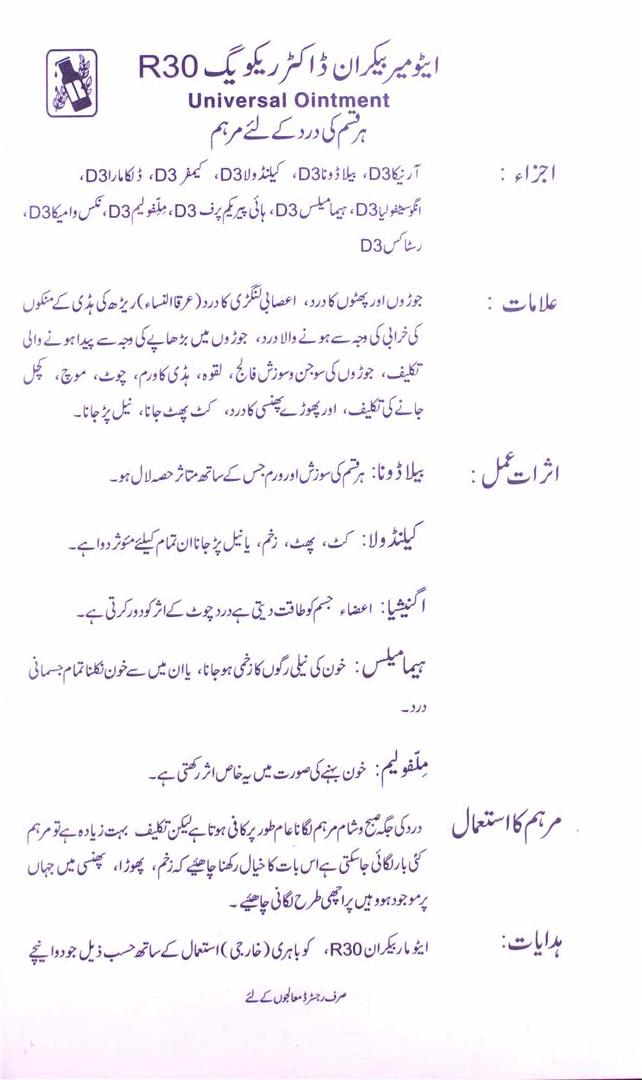 ایٹومیر بیکران ڈاکٹر ریکویگ R30
Universal Ointment
ہر قسم کی درد کے لئے مرہم
اجزاء : آرنیکا D3، بیلاڈونا D3، کیلنڈولا D3، کیمفر D3، ڈلکامارا D3،
انگوسٹیفولیا D3، ہیمامیلس D3، ہائی پیریکم پرف D3، ملّفولیم D3، نکس وامیکا D3،
رسٹاکس D3
علامات : جوڑوں اور پھٹوں کا درد، اعصابی لنگڑی کا درد (عرقاالنساء) ریڑھ کی ہڈی کے منکوں
کی خرابی کی وجہ سے ہونے والا درد، جوڑوں میں بڑھاپے کی وجہ سے پیدا ہونے والی
تکلیف، جوڑوں کی سوجن و سوزش فالج، لقوہ، ہڈی کا ورم، چوٹ، موچ، کچل
جانے کی تکلیف، اور پھوڑے پھنسی کا درد، کٹ پھٹ جانا، نیل پڑ جانا۔
اثرات عمل : بیلاڈونا: ہر قسم کی سوزش اور ورم جس کے ساتھ متاثر حصہ لال ہو۔
کیلنڈولا: کٹ، پھٹ، زخم، یا نیل پڑ جانا ان تمام کیلئے مؤثر دوا ہے۔
اگنیشیا: اعضاء جسم کو طاقت دیتی ہے درد چوٹ کے اثر کو دور کرتی ہے۔
ہیمامیلس: خون کی نیلی رگوں کا زخمی ہو جانا، یا ان میں سے خون نکلنا تمام جسمانی
درد۔
ملّفولیم: خون بہنے کی صورت میں یہ خاص اثر رکھتی ہے۔
مرہم کا استعمال درد کی جگہ صبح و شام مرہم لگانا عام طور پر کافی ہوتا ہے لیکن تکلیف بہت زیادہ ہے تو مرہم
کئی بار لگائی جاسکتی ہے اس بات کا خیال رکھنا چاھئیے کہ زخم، پھوڑا، پھنسی میں جہاں
پر موجود ہو وہیں پر اچھی طرح لگانی چاھئیے۔
ہدایات: ایٹو مار بیکران R30، کو باہری (خارجی) استعمال کے ساتھ حسب ذیل جو دوا نیچے
صرف رجسٹرڈ معالجوں کے لئے